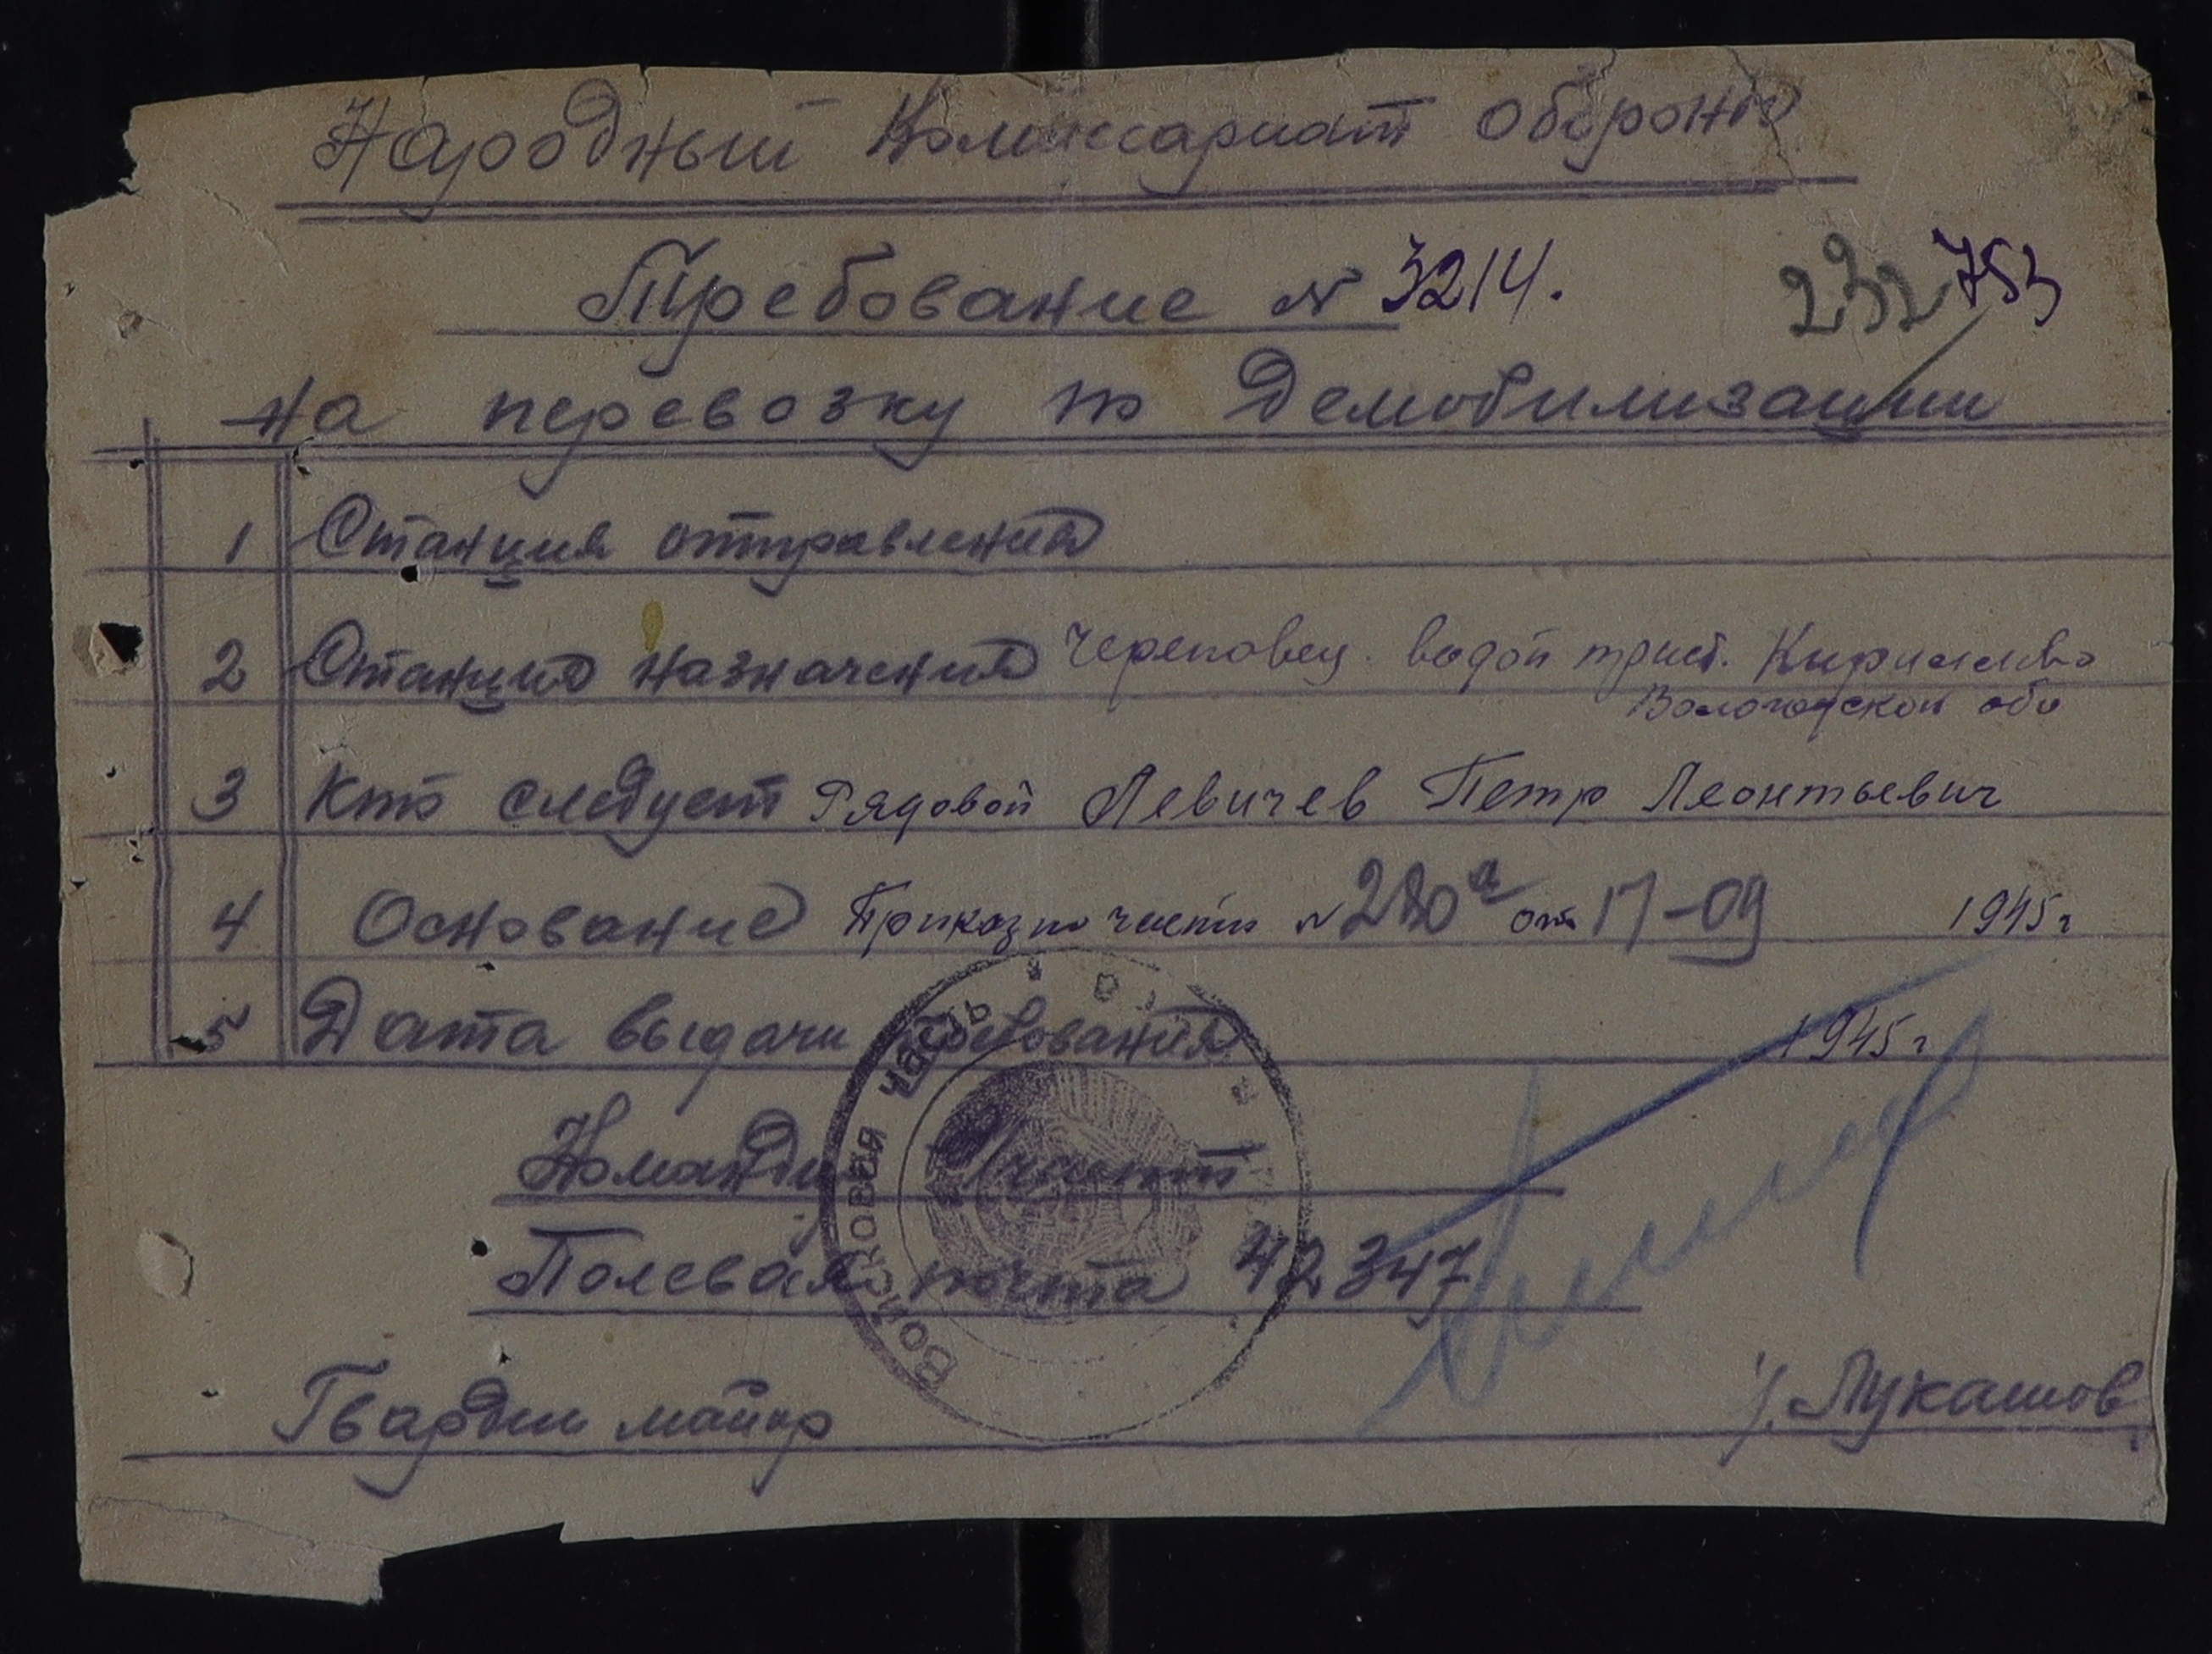 Народный Комиссариат Обороны
Требование № 3214.
232 753
на перевозку по Демобилизации
1 Станция отправления
2 Станция назначения Череповец. водой прист. Кириллово
Вологодской обл
3 Кто следует Рядовой Левичев Петр Леонтьевич
4 Основание Приказ по части № 280а от 17-09 1945г
5 Дата выдачи требования 1945г
Командир части
Полевая почта 42347
Войсковая часть
Гвардии майор /Лукашов